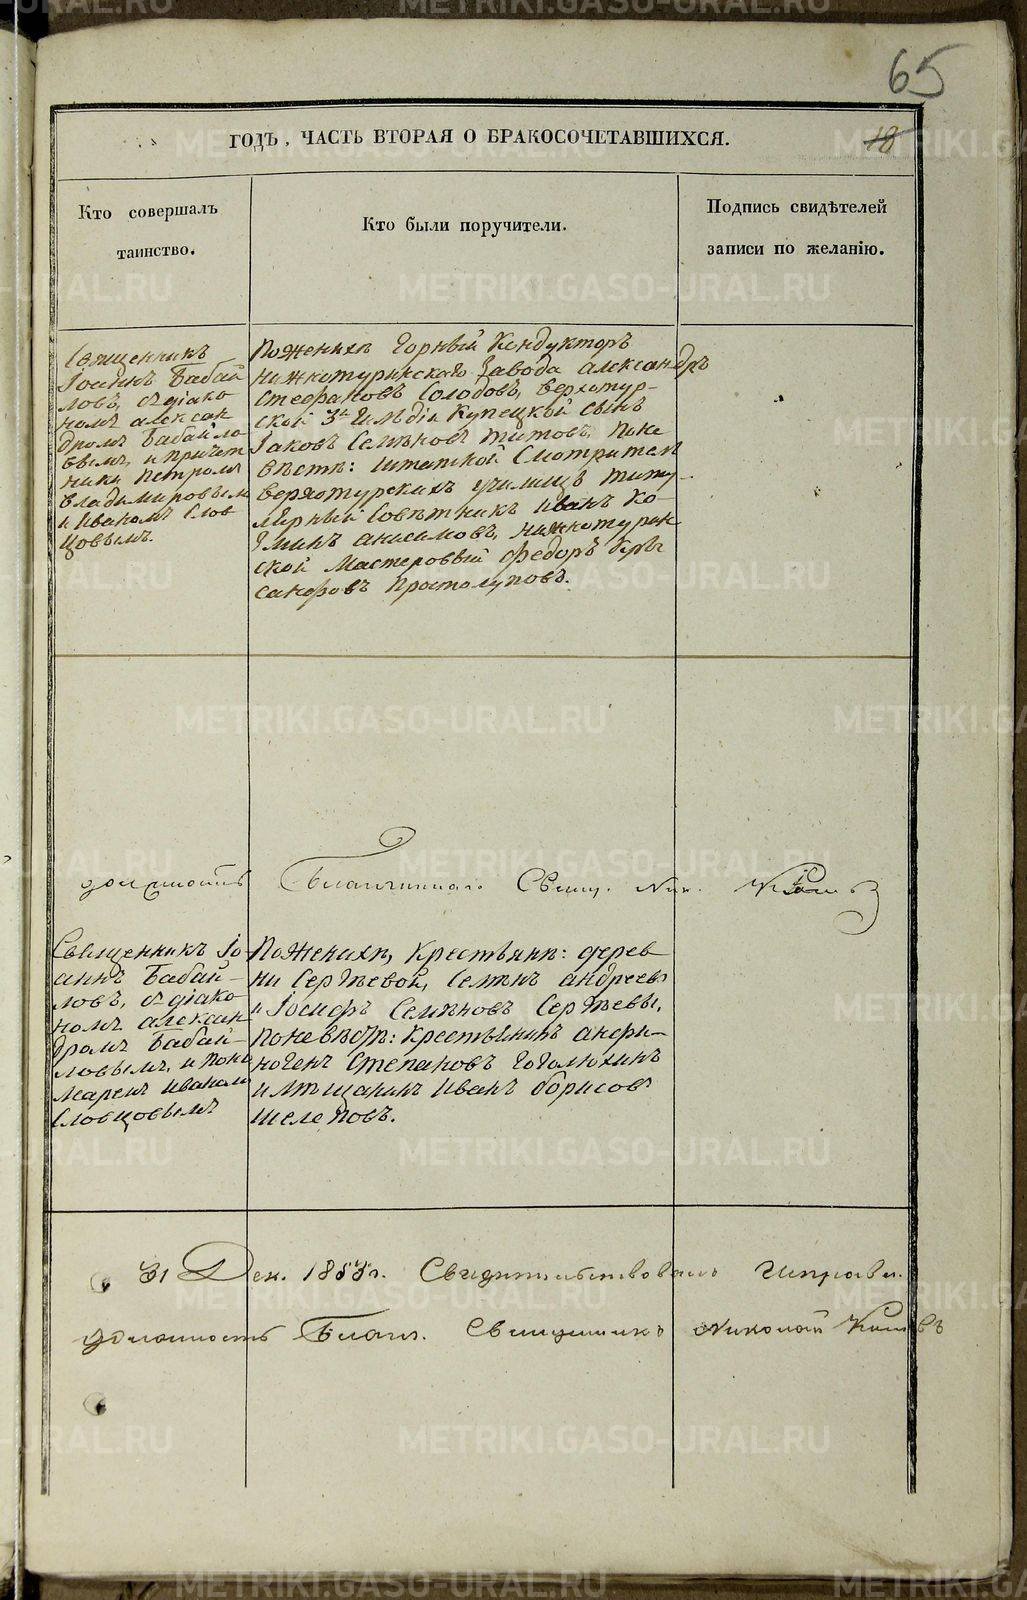 65
ГОДЪ, ЧАСТЬ ВТОРАЯ О БРАКОСОЧЕТАВШИХСЯ.
18
Кто совершалъ
таинство.
Кто были поручители.
Подпись свидѣтелей
записи по желанію.
Священникъ
Іоаннъ Бабай
ловъ, съ діако
номъ алексан
дромъ Бабайло
вымъ, и причет
ники Петромъ
Владимировымъ
и Иваномъ Слов
цовымъ.
По женихѣ Горный Кондукторъ
нижнотуринскаго Завода александръ
Стефановъ Солодовъ, верхотур-
ской 3й Гильдіи Купецкой сынъ
Іаковъ Семеновъ Титовъ, По не
вѣстѣ: Штатной Смотрител
верхотурскихъ училищъ титу-
лярный Совѣтникъ Иванъ Ко-
зминъ анисимовъ, нижнотурин
ской Мастеровый федоръ
Простолуповъ.
должность Благочиннаго Свящ. Ник.
Священникъ Іо-
аннъ Бабай-
ловъ, съ діако
номъ алексан
дромъ Бабай-
ловымъ, и поно
маремъ Иваномъ
Словцовымъ
По женихѣ, Крестьяне: дерев
ни Сергѣевой, Семенъ андреевъ
и Іосифъ Семеновъ Сергѣевы,
По невѣстѣ: Крестьянинъ анфи-
ногенъ Степановъ Гоголюхинъ
и мѣщанинъ Иванъ борисовъ
Шелеповъ.
31 Дек. 1853 г. Свидѣтельствовалъ Исправл.
должность Благоч. Священникъ Николай
METRIKI.GASO-URAL.RU